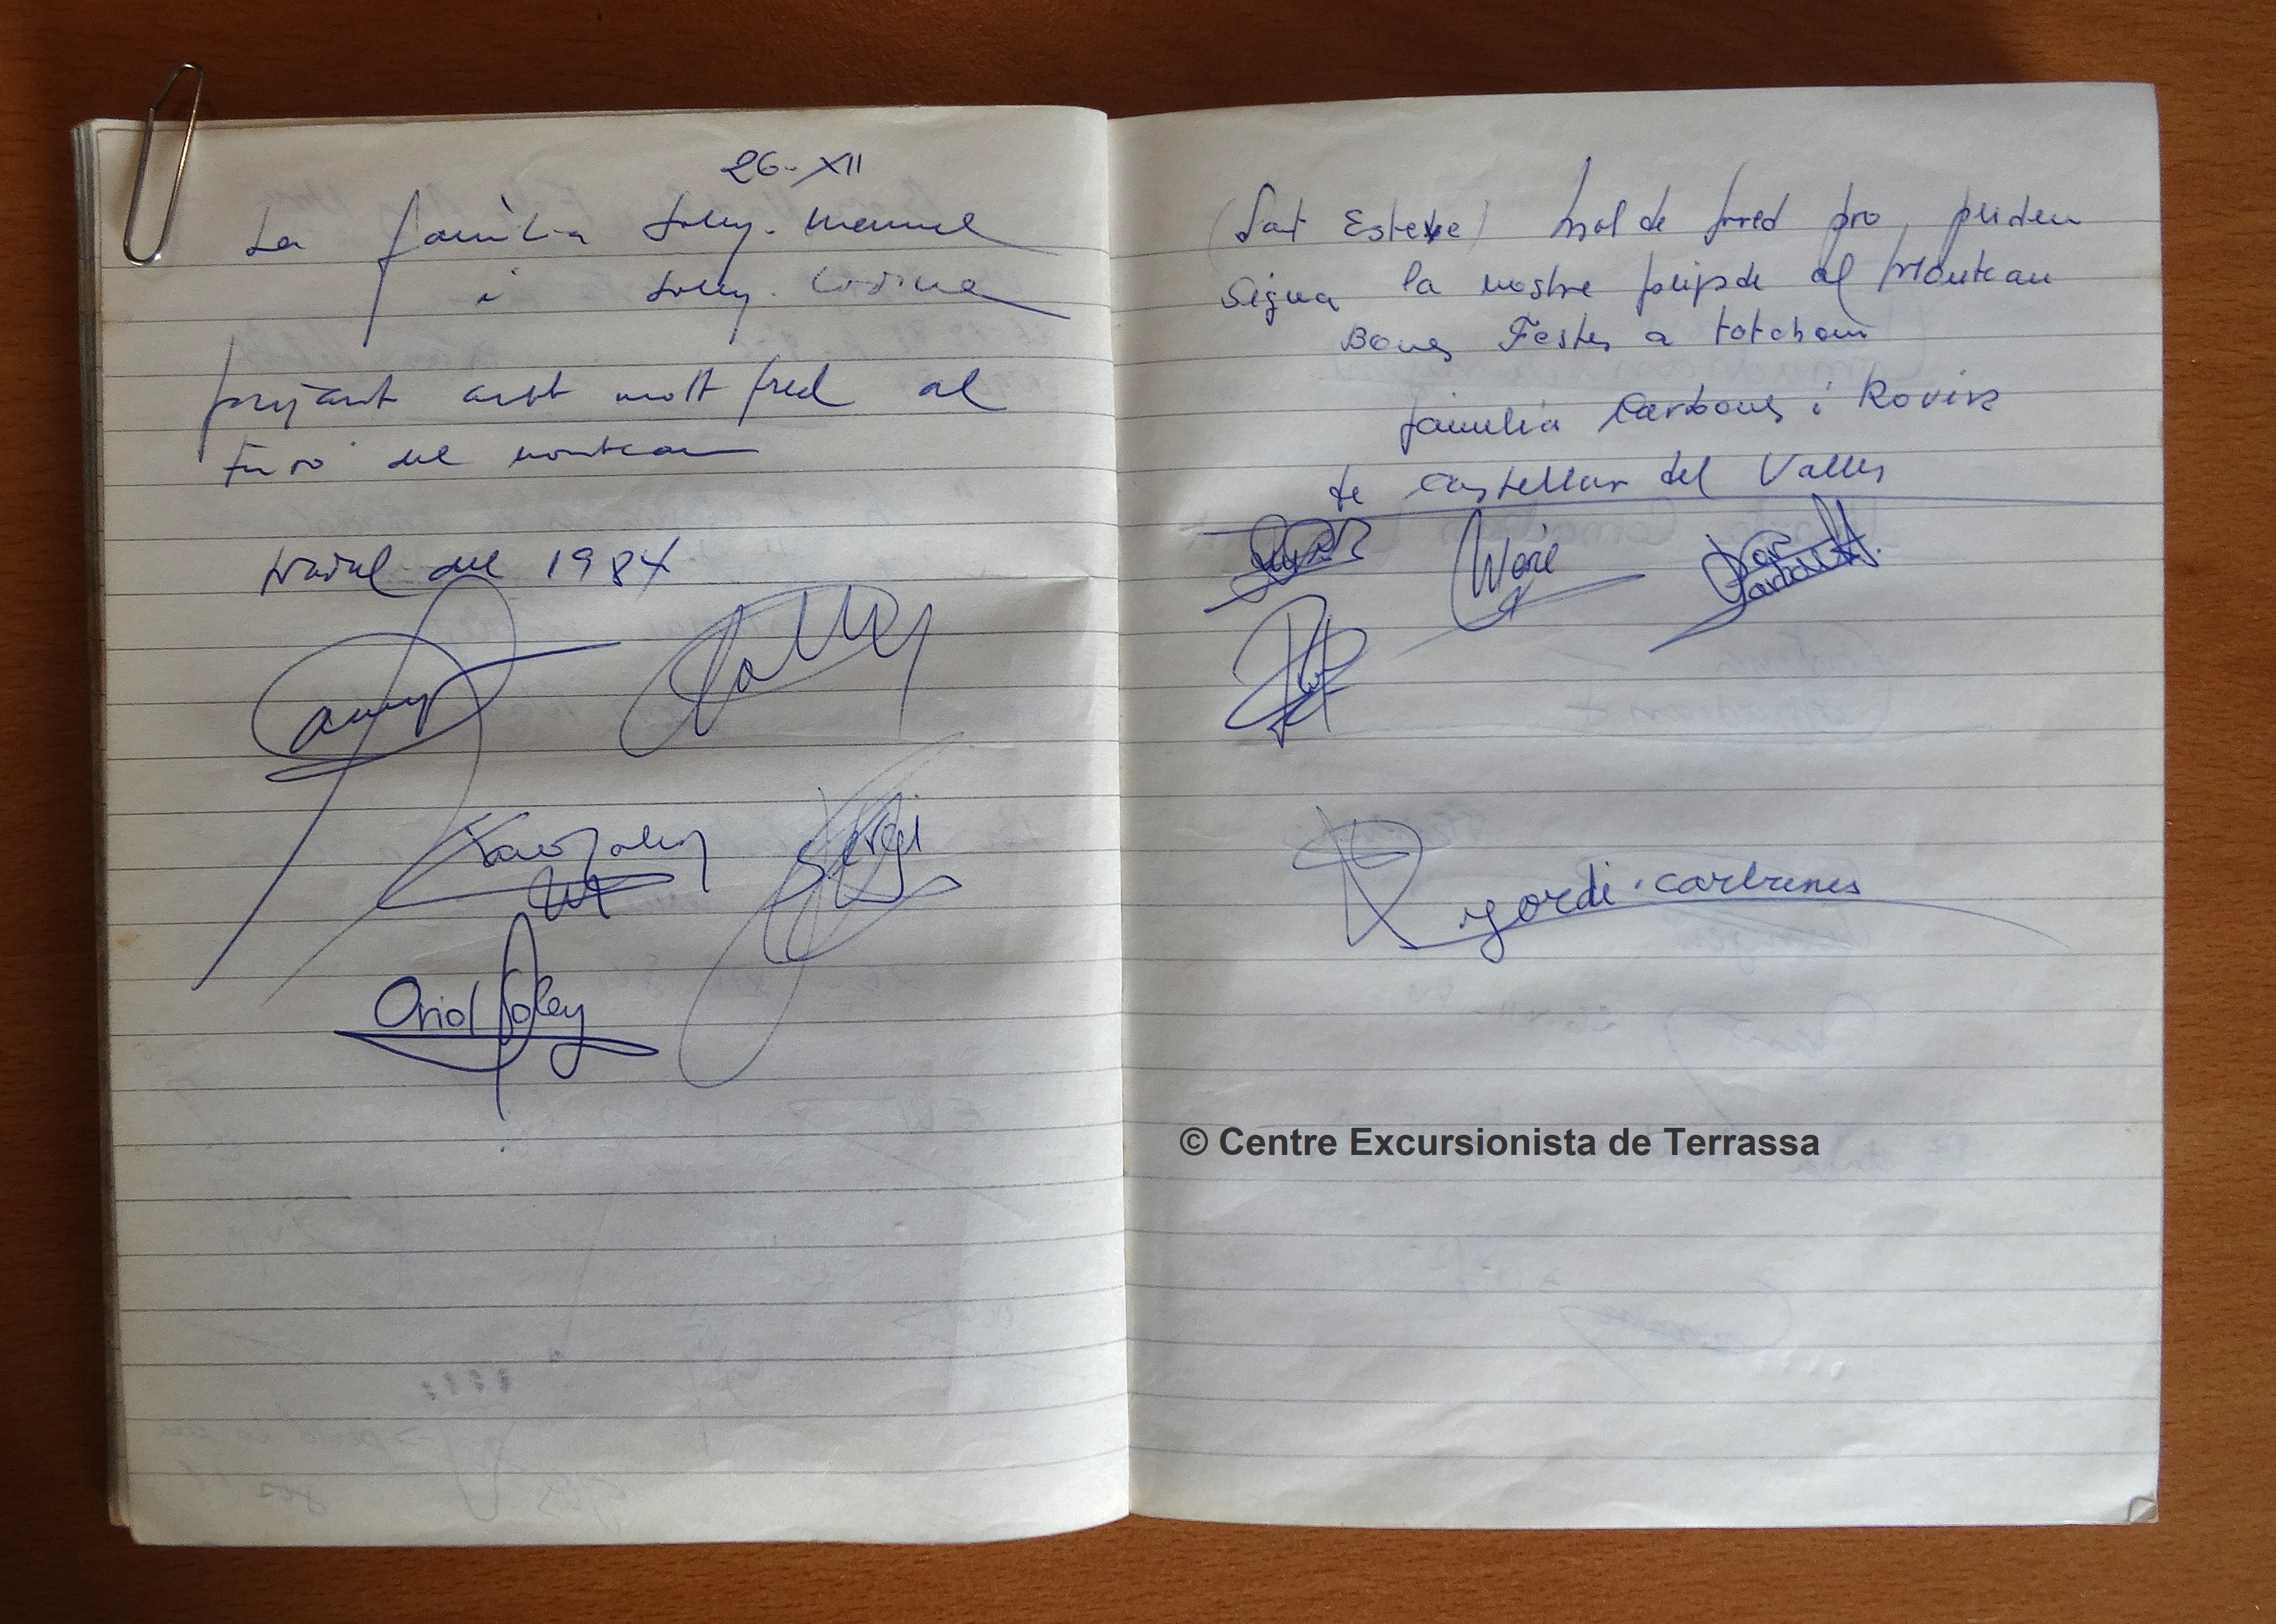 26-XII
La família Soley. Manuel
i Soley. Codina
pujant amb molt fred al
Turó del montcau
Nadal del 1984
Xavi Soley
Sergi
Oriol Soley
(Sat Esteve) Mol de fred pro
Sigua la nostre al Montcau
Bones Festes a tothom
familia Carbones i Rovira
de Castellar del Valles
jordi. carbones
© Centre Excursionista de Terrassa